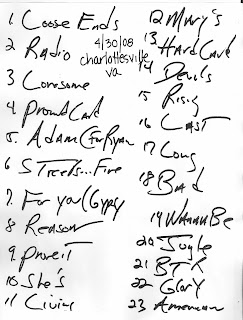 1 Loose Ends
2 Radio
3 Lonesome
4 Proud Card
5. Adam (For Ryan
6 Streets...Fire
7. For you (Gypsy
8 Reason
9 Prove it
10 She's
11 Living
4/30/08
charlottesville
va
12 Mary's
13 Hard Card
14 Devils
15 Risig
16 Last
17 Long
18 Bad
19 WannaBe
20 Jugle
21 BTR
22 Glory
23 American